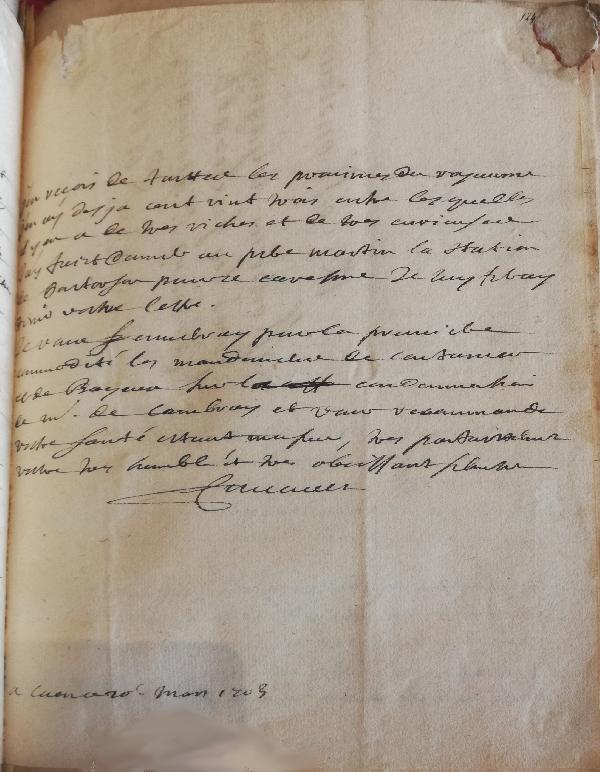 124
reçois de toutes les provinces du royaume
j'en ay desja cent vint trois entre lesquelles
il y en a de tres riches et de tres curieuses
J'ay fait donner au pere martin la station
de pour ce caresme Je luy feray
tenir vostre lettre.
Je vous envoieray par la premiere
commodité les mandements de coutances
et de Bayeux sur la condamnation
de mr. de cambray et vous recommande
vostre santé estant monsieur, tres parfaitement
vostre tres humble et tres obeissant serviteur
a Caen ce 20e mars 1703